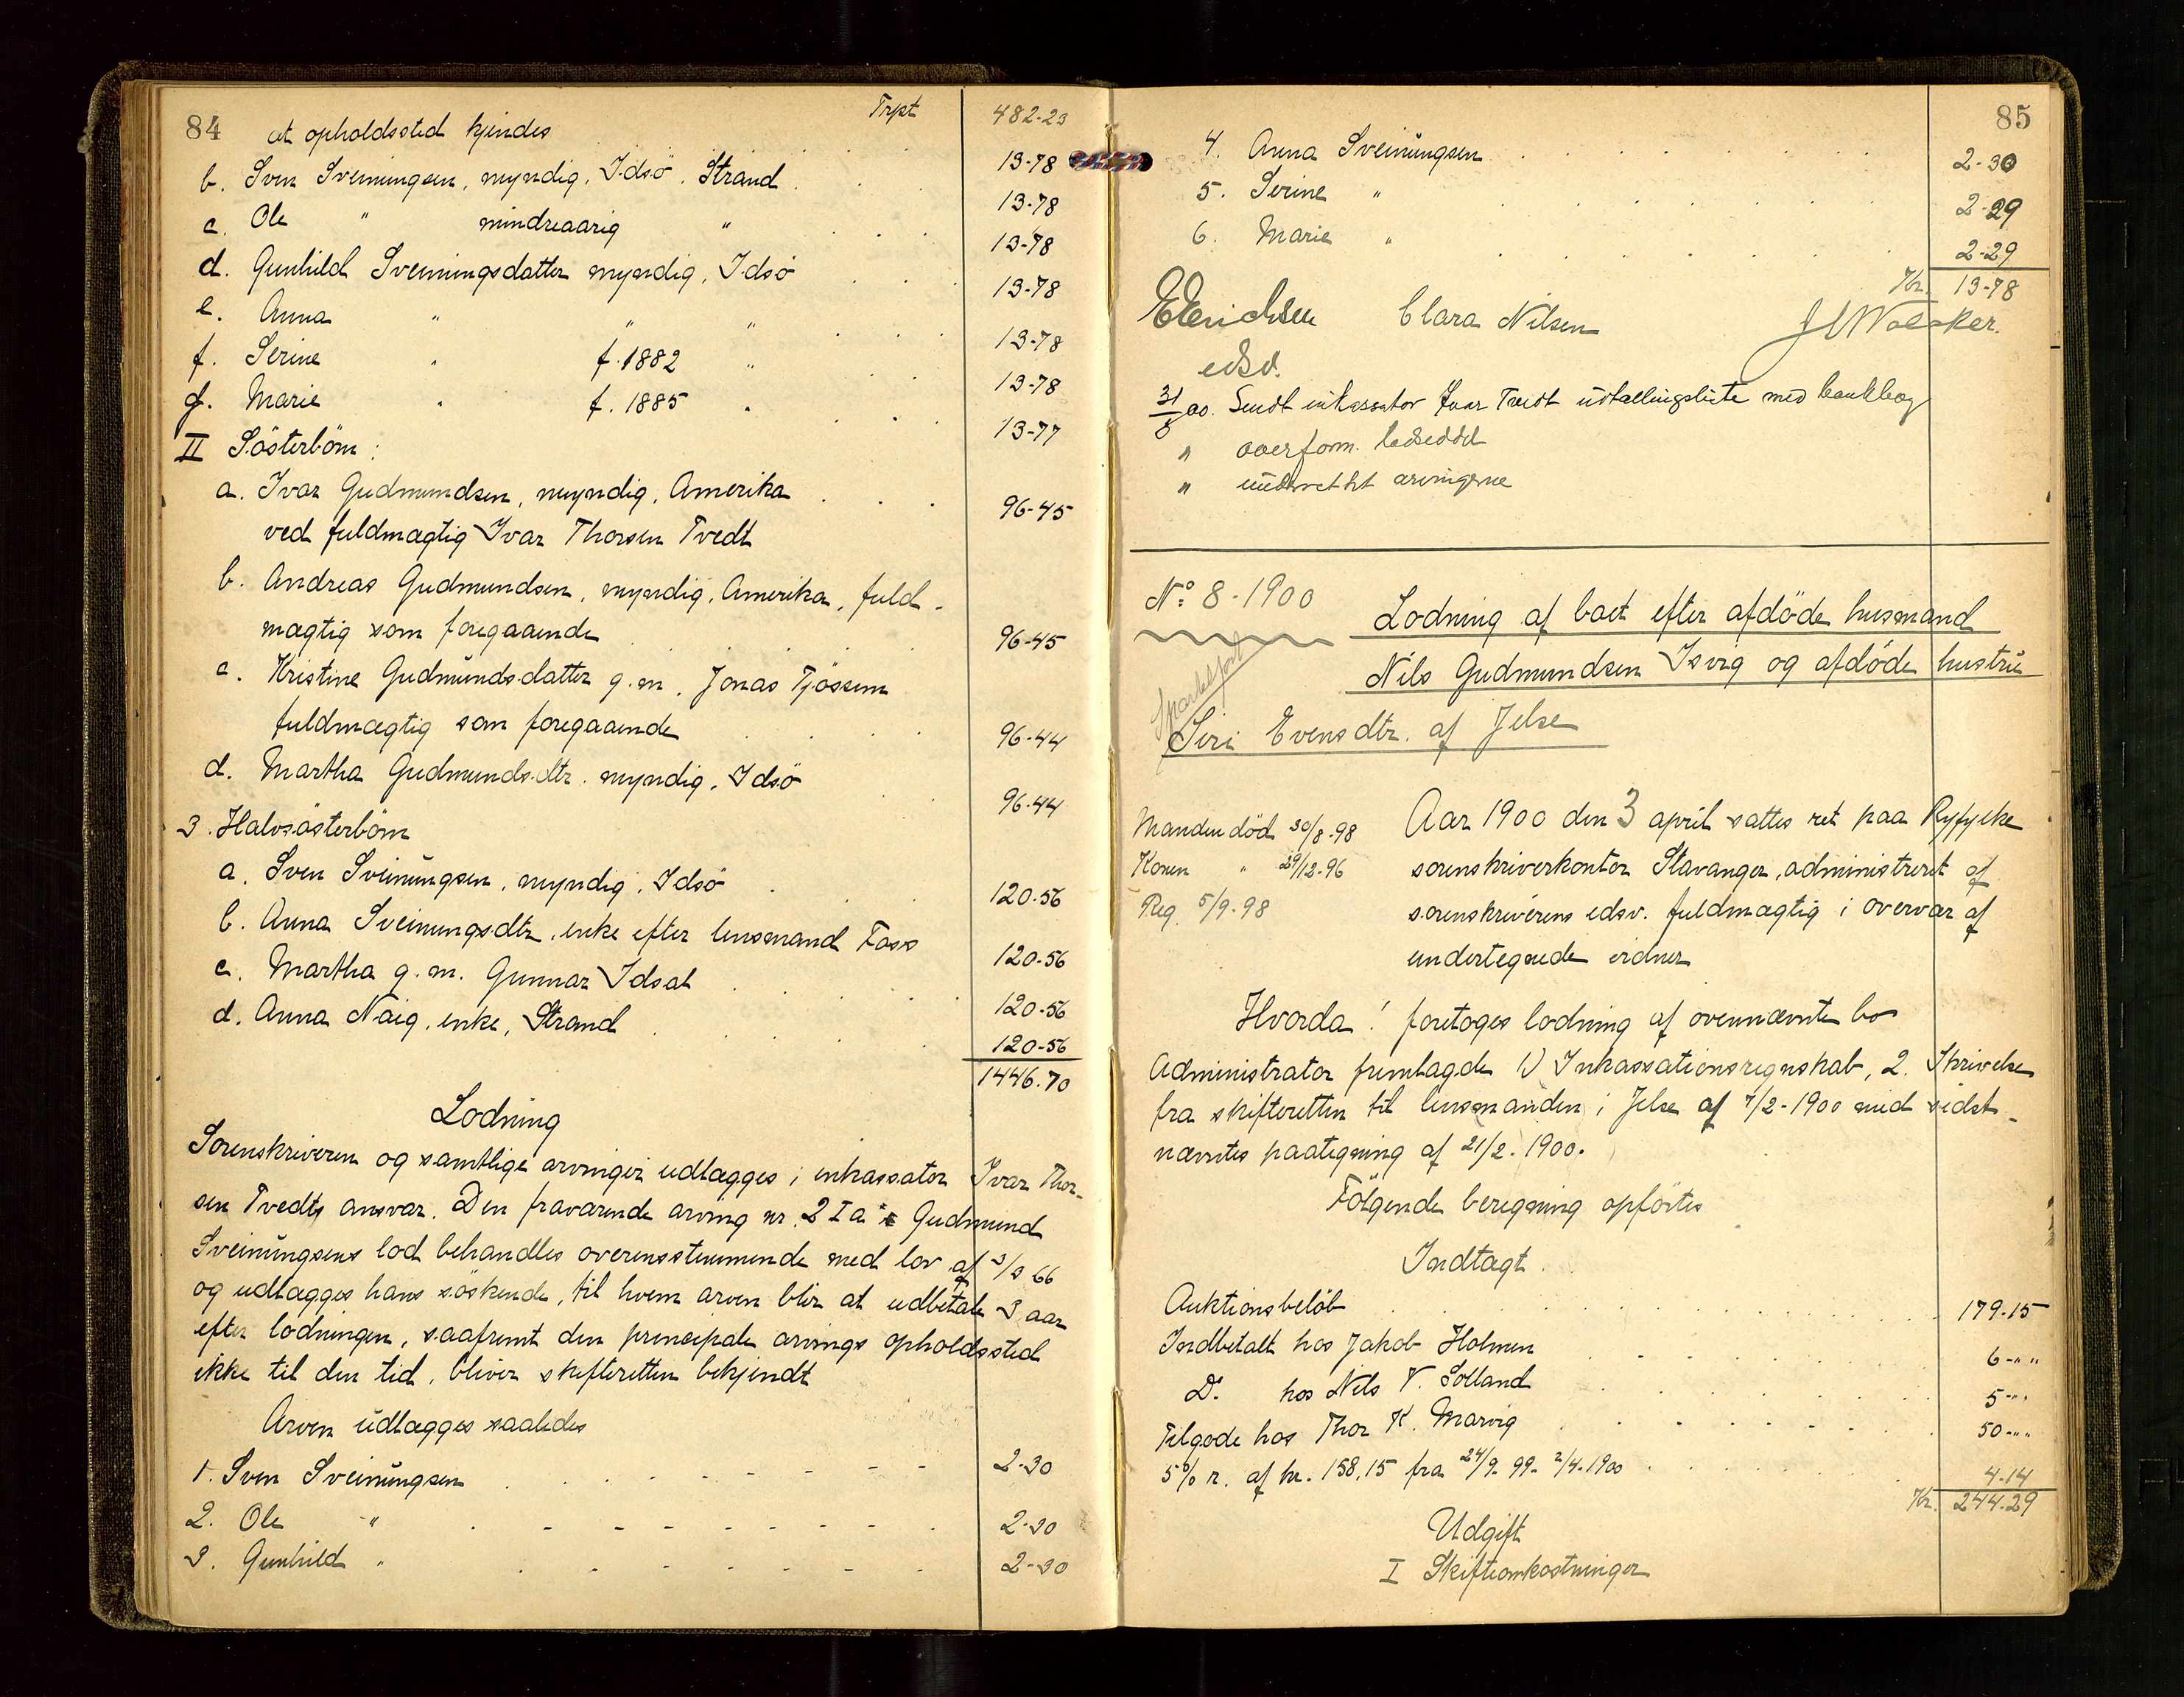 84
Trpt 482-23
at opholdssted kjendes 13-78
b. Sven Sveinungsen, myndig, Idsö, Strand 13-78
c. Ole " mindreaarig " 13-78
d. Gunhild Sveinungsdatter myndig, Idsö 13-78
e. Anna " " " 13-78
f. Serine " f. 1882 " 13-78
g. Marie " f. 1885 " 13-77
II Sösterbörn:
a. Ivar Gudmundsen, myndig, Amerika 96-45
ved fuldmægtig Ivar Thorsen Tvedt
b. Andreas Gudmundsen, myndig, Amerika, fuld-
mægtig som foregaaende 96-45
c. Kristine Gudmundsdatter g.m. Jonas Tjössem
fuldmægtig som foregaaende 96-44
d. Martha Gudmundsdtr. myndig, Idsö 96-44
3. Halvsösterbörn
a. Sven Sveinungsen, myndig, Idsö 120-56
b. Anna Sveinungsdtr, enke efter lensmand Foss 120-56
c. Martha g.m. Gunnar Idsal 120-56
d. Anna Naig, enke, Strand 120-56
1446.70
Lodning
Sorenskriveren og samtlige arvinger udlægges i inkassator Ivar Thor-
sen Tvedts ansvar. Den fraværende arving nr. 2 I a Gudmund
Sveinungsens lod behandles overensstemmende med lov af 3/3 66
og udlægges hans söskende, til hvem arven blir at udbetale 3 aar
efter lodningen, saafremt den principale arvings opholdssted
ikke til den tid, bliver skifteretten bekjendt
Arven udlægges saaledes
1. Sven Sveinungsen 2-30
2. Ole " 2-30
3. Gunhild " 2-30
85
4. Anna Sveinungsen 2-30
5. Serine " 2-29
6. Marie " 2-29
Kr. 13-78
EErichsen Clara Nilsen
edsv.
31/8 00. Sendt inkassator Ivar Tvedt udtællingsliste med bankbog
" overform. lodseddel
" underrettet arvingerne
No. 8-1900
Lodning af boet efter afdöde husmand
Nils Gudmundsen Isvig og afdöde hustru
Siri Evensdtr. af Jelse
Manden död 30/8-98
Konen " 29/12-96
Reg. 5/9-98
Aar 1900 den 3 april sattes ret paa Ryfylke
sorenskriverkontor Stavanger, administreret af
sorenskriverens edsv. fuldmægtig i overvær af
undertegnede vidner
Hvorda! foretoges lodning af ovennævnte bo
Administrator fremlagde 1) Inkassationsregnskab, 2. Skrivelse
fra skifteretten til lensmanden i Jelse af 7/2-1900 med sidst-
nævntes paategning af 21/2-1900.
Fölgende beregning opförtes
Indtægt
Auktionsbelöb 179-15
Indbetalt hos Jakob Holmen 6-" "
Do. hos Nils V. Solland 5-" "
Tilgode hos Thor K. Marvig 50-" "
5% r. af kr. 158,15 fra 24/9-99- 2/4-1900 4-14
Kr. 244.29
Udgift
I Skifteomkostninger